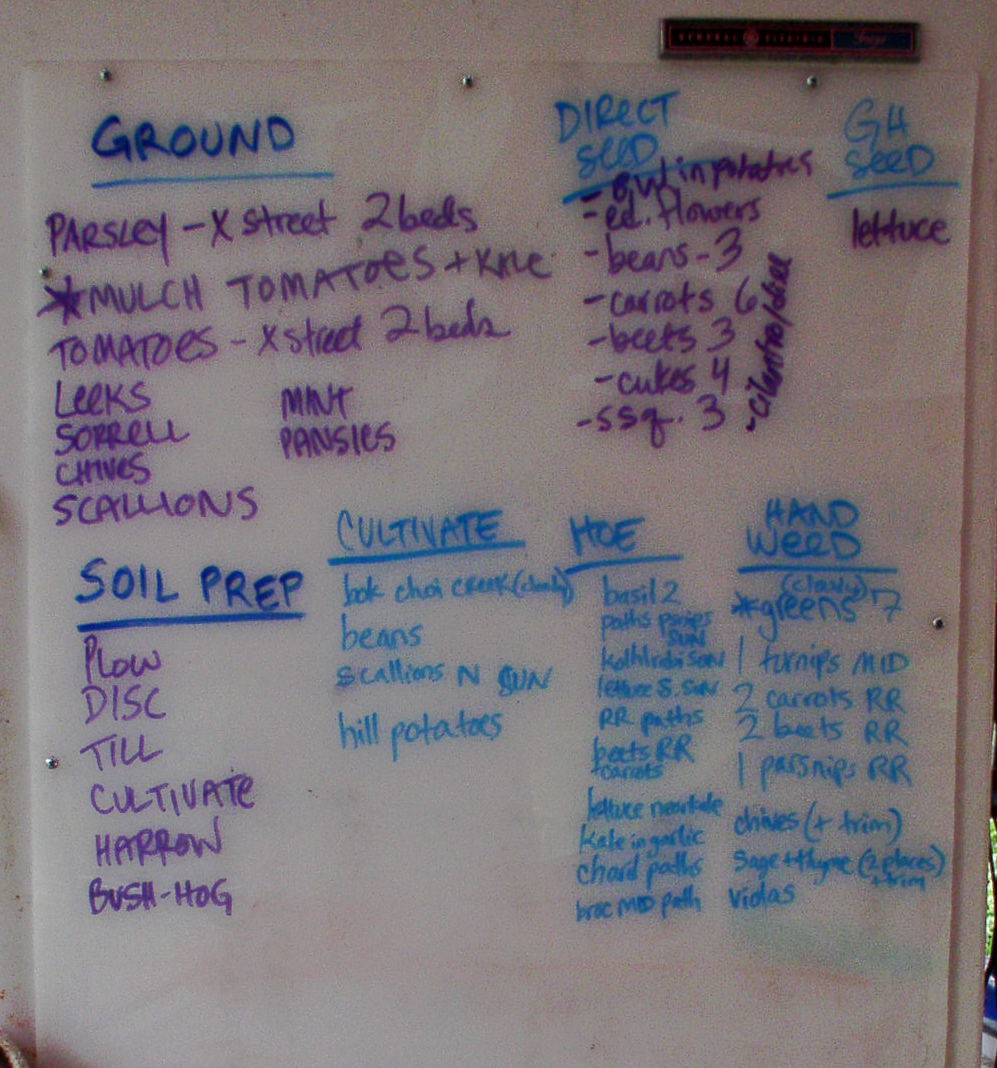 GENERAL GE ELECTRIC
GROUND
PARSLEY - X street 2 beds
*MULCH TOMATOES + KALE
TOMATOES - X street 2 beds
LEEKS
SORRELL
CHIVES
SCALLIONS
MINT
PANSIES
DIRECT
SEED
- in potatoes
- ed. flowers
- beans - 3
- carrots 6
- beets 3
- cukes 4
- ssq. 3
- cilantro/dill
GH
SEED
lettuce
SOIL PREP
PLOW
DISC
TILL
CULTIVATE
HARROW
BUSH-HOG
CULTIVATE
bok choi creek
beans
scallions N SUN
hill potatoes
HOE
basil 2
paths
SUN
kolhlrabi SUN
lettuce S. SUN
RR paths
beets RR
+carrots
lettuce near kale
kale in garlic
chard paths
broc MID path
HAND
WEED
*greens 7
1 turnips MID
2 carrots RR
2 beets RR
1 parsnips RR
chives (+ trim)
sage + thyme (2 places)
+ trim
violas